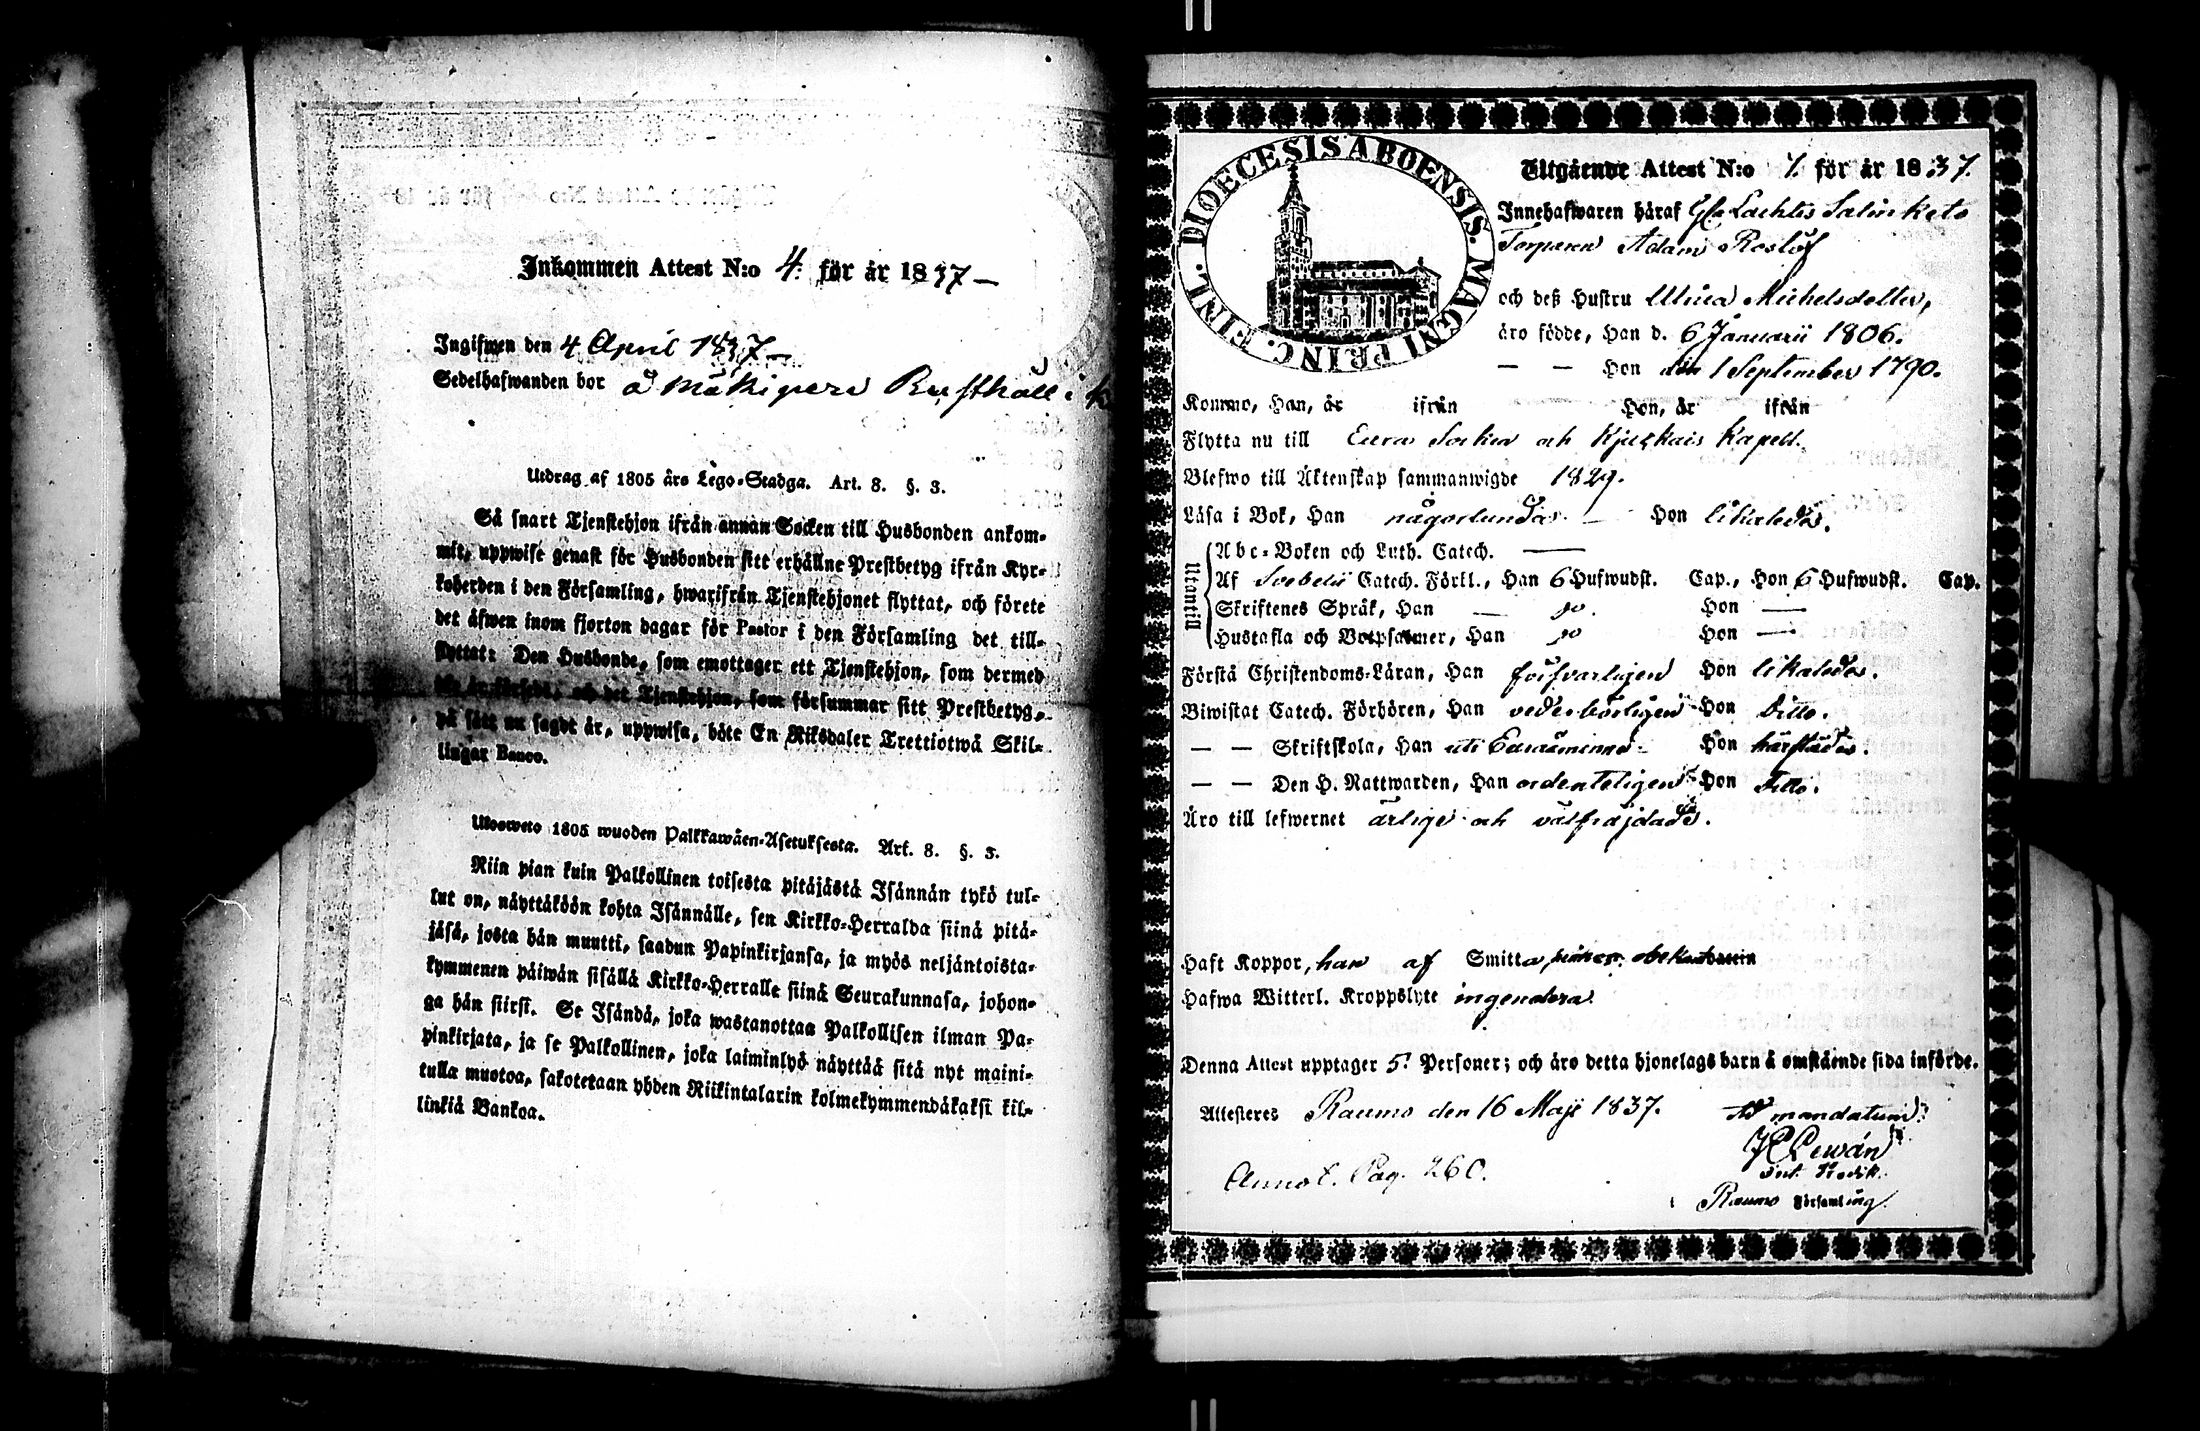 Inkommen Attest N:o 4. för år 1837 —
Ingifwen den 4 April 1837 —
Sedelhafwanden bor å Mäkiperä Rusthåll i
Utdrag af 1805 års Lego-Stadga. Art. 8. §. 3.
Så snart Tjenstehjon ifrån annan Socken till Husbonden ankom-
mit, uppwise genast för Husbonden sitt erhållne Prestbetyg ifrån Kyr-
koherden i den Församling, hwarifrån Tjenstehjonet flyttat, och förete
det äfwen inom fjorton dagar för Pastor i den Församling det till-
flyttat: Den Husbonde, som emottager ett Tjenstehjon, som dermed
och det Tjenstehjon, som försummar sitt Prestbetyg,
på sätt nu sagdt är, uppwisa, böte En Riksdaler Trettiotwå Skil-
lingar Banco.
Uloswето 1805 wuoden Palkkawäen-Asetuksesta. Art. 8. §. 3.
Niin pian kuin Palkollinen toisesta pitäjästä Isännän tykö tul-
lut on, näyttäköön kohta Isännälle, sen Kirkko-Herralda siinä pitä-
jäsä, josta hän muutti, saadun Papinkirjansa, ja myös neljäntoista-
kymmenen päiwän sisällä Kirkko-Herralle siinä Seurakunnasa, johon-
ga hän siirsi. Se Isändä, joka wastanottaa Palkollisen ilman Pa-
pinkirjata, ja se Palkollinen, joka laiminlyö näyttää sitä nyt maini-
tulla muotoa, sakotetaan yhden Riikintalarin kolmekymmendäkaksi kil-
linkiä Bankoa.
DIOECESIS ABOENSIS. MAGNI PRINC. FINL.
Utgående Attest N:o 7. för år 1837.
Innehafwaren häraf Lachtis Salinketo
Torparen Adam Roslöf
och deß Hustru Ulrica Michelsdotter,
äro födde, Han d. 6 Januarii 1806.
— — Hon den 1 September 1790.
Kommo, Han, år ifrån Hon, år ifrån
Flytta nu till Eura Socken och Kjukais Kapell.
Blefwo till Äktenskap sammanwigde 1829.
Läsa i Bok, Han någorlunda. — Hon likaledes.
Utantill
Abc-Boken och Luth. Catech. —
Af Svebelii Catech. Förkl., Han 6 Hufwudst. Cap., Hon 6 Hufwudst. Cap.
Skriftenes Språk, Han — Hon —
Hustafla och Botpsalmer, Han Hon —
Förstå Christendoms-Läran, Han försvarligen Hon likaledes.
Biwistat Catech. Förhören, Han vederbörligen Hon Ditto.
— — Skriftskola, Han uti Euraåminne Hon härstädes.
— — Den H. Nattwarden, Han ordenteligen Hon Ditto.
Äro till lefwernet ärlige och välfräjdade.
Haft Koppor, han af Smitta, hennes obekant
Hafwa Witterl. Kroppslyte ingendera.
Denna Attest upptager 5. Personer; och äro detta hjonelags barn å omstående sida införde.
Attesteres Raumo den 16 Maji 1837. Ad mandatum:
Lewán
Raumo Församling.
Annot. Pag. 260.